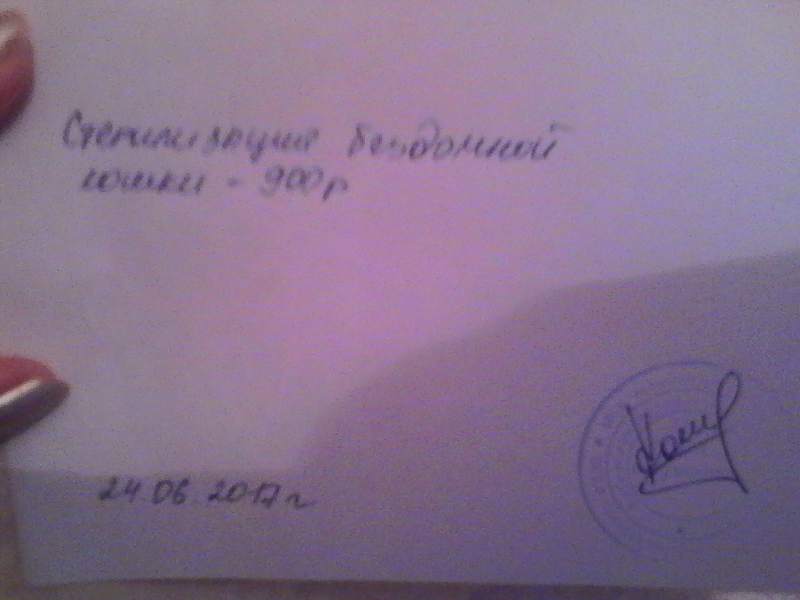 Стерилизация бездомной
кошки - 900 р
24.06.2017 г